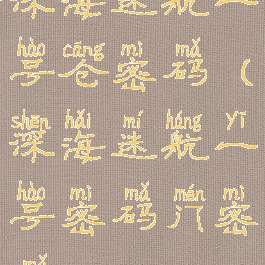 深海迷航一
hào cāng mì mǎ
号仓密码（
shēn hǎi mí háng yī
深海迷航一
hào mì mǎ mén mì
号密码门密
mǎ